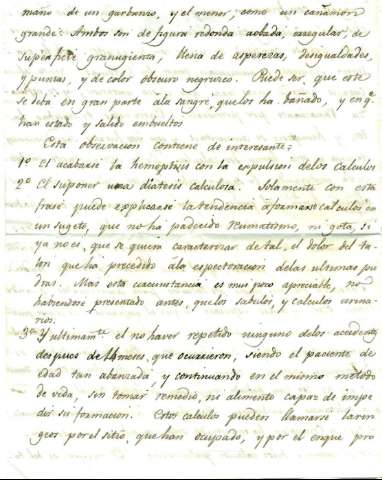 maño de un garbanzo, y el menor, como un cañamon
grande. Ambos son de figura redonda aobada, irregular, de
superficie granugienta, llena de asperezas, desigualdades,
y puntas, y de color obscuro negruzco. Puede ser, que este
se deba en gran parte ála sangre, quelos ha bañado, y en q.e
han estado y salido embueltos
Esta observacion contiene de interesante:
1º El acabarse la hemoptisis con la expulsion delos calculos
2º El suponer una diatesis calculosa. Solamente con esta
frase puede explicarse la tendencia á formarse calculos en
un sugeto, que no ha padecido reumatismo, ni gota, si
ya no es, que se quiera caracterizar de tal, el dolor del ta-
lon que ha precedido ála espectoracion delas ultimas pie
dras. Mas esta circunstancia es muy poco apreciable, no
habiendose presentado antes, quelos sabulos, y calculos urina-
rios.
3º Y ultimam.te el no haver repetido ninguno delos accidentes
despues de meses, que ocurrieron, siendo el paciente de
edad tan abanzada, y continuando en el mismo metodo
de vida, sin tomar remedio, ni alimento capaz de impe
dir su formacion. Estos calculos pueden llamarse larin-
geos por el sitio, que han ocupado, y por el enque pro